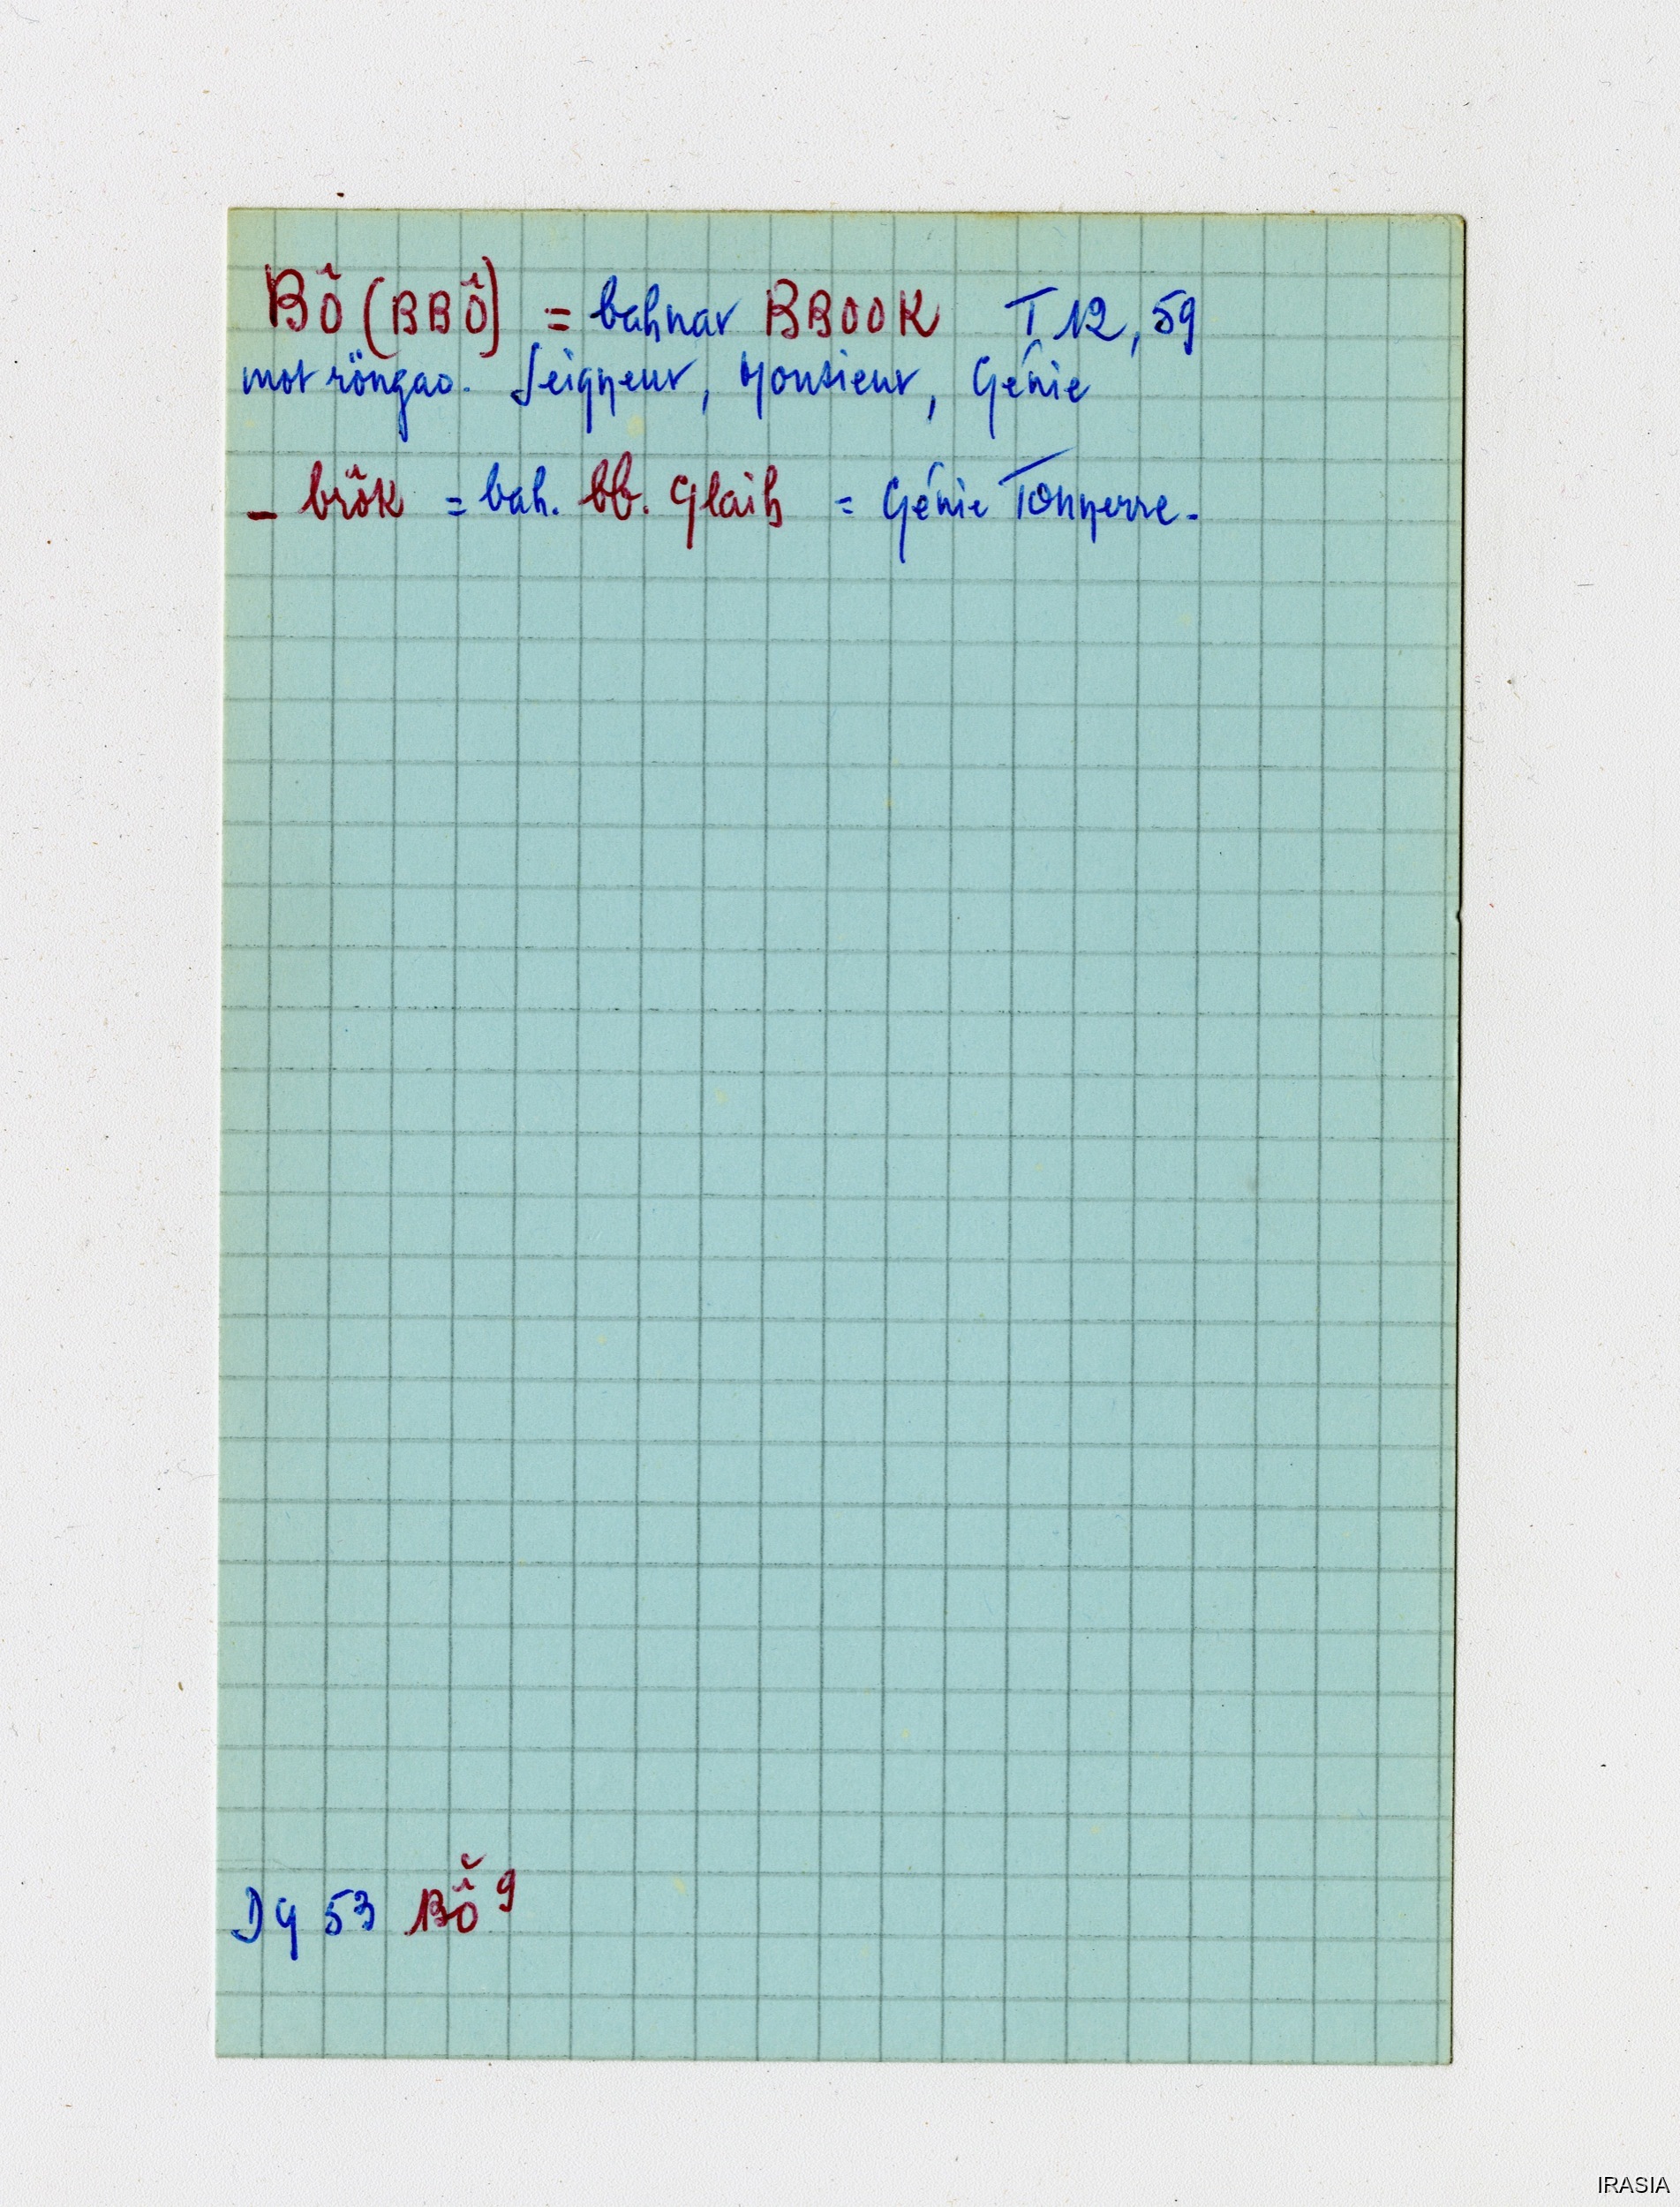 BÔ (BBÔ) = bahnar BBOOK T 12, 59
mot röngao. Seigneur, Monsieur, Génie
- brôk = bah. bb. glaih = Génie Tonnerre.
Dy 53 BÔ̆ 9
IRASIA